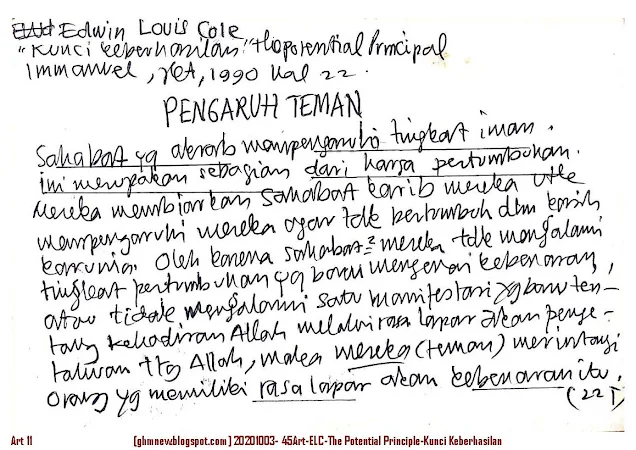 Edwin Louis Cole
"Kunci keberhasilan" the potential Principal
Immanuel, 1990 hal 22.
PENGARUH TEMAN
Sahabat yg akrab mempengaruhi tingkat iman.
ini merupakan sebagian dari harga pertumbuhan.
Mereka membiarkan sahabat karib mereka utk
mempengaruhi mereka agar tdk bertumbuh dlm kasih
karunia. Oleh karena sahabat² mereka tdk mengalami
tingkat pertumbuhan yg baru mengenai kebenaran,
atau tidak mengalami satu manifestasi yg baru ten-
tang kehadiran Allah melalui rasa lapar akan penge-
tahuan ttg Allah, maka mereka (teman) merintangi
Orang yg memiliki rasa lapar akan kebenaran itu.
(22)
Art 11
[ghmnew.blogspot.com] 20201003- 45Art-ELC-The Potential Principle-Kunci Keberhasilan